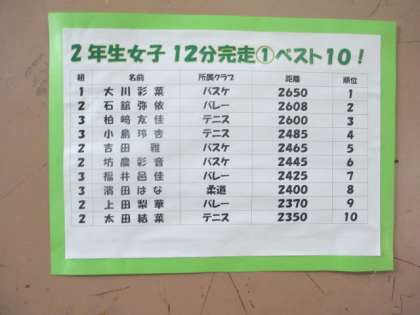 2年生女子 12分完走①ベスト10!
組 名前 所属クラブ 距離 順位
1 大川彰菜 バスケ 2650 1
2 石舘弥依 バレー 2608 2
3 柏崎友佳 テニス 2600 3
3 小島玲杏 テニス 2485 4
2 吉田 雅 バスケ 2465 5
2 坊農彰音 バスケ 2445 6
3 福井邑佳 バレー 2425 7
3 濱田はな 柔道 2400 8
2 上田梨華 バレー 2370 9
2 太田結菜 テニス 2350 10